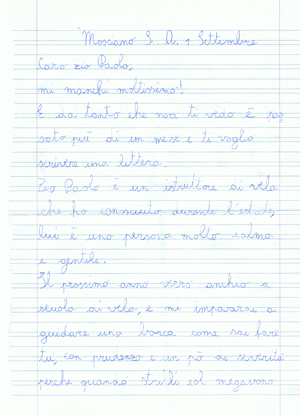 Mosciano S. A. 1 Settembre
Caro zio Paolo,
mi manchi moltissimo!
È da tanto che non ti vedo è pas
sato più di un mese e ti voglio
scrivere una lettera.
Zio Paolo è un istruttore di vela
che ho conosciuto durante l'estate,
lui è una persona molto calma
e gentile.
Il prossimo anno verrò anch'io a
scuola di vela, e mi imparerai a
guidare una barca come sai fare
tu, con prudenza e un pò di severità
perché quando strilli col megafono